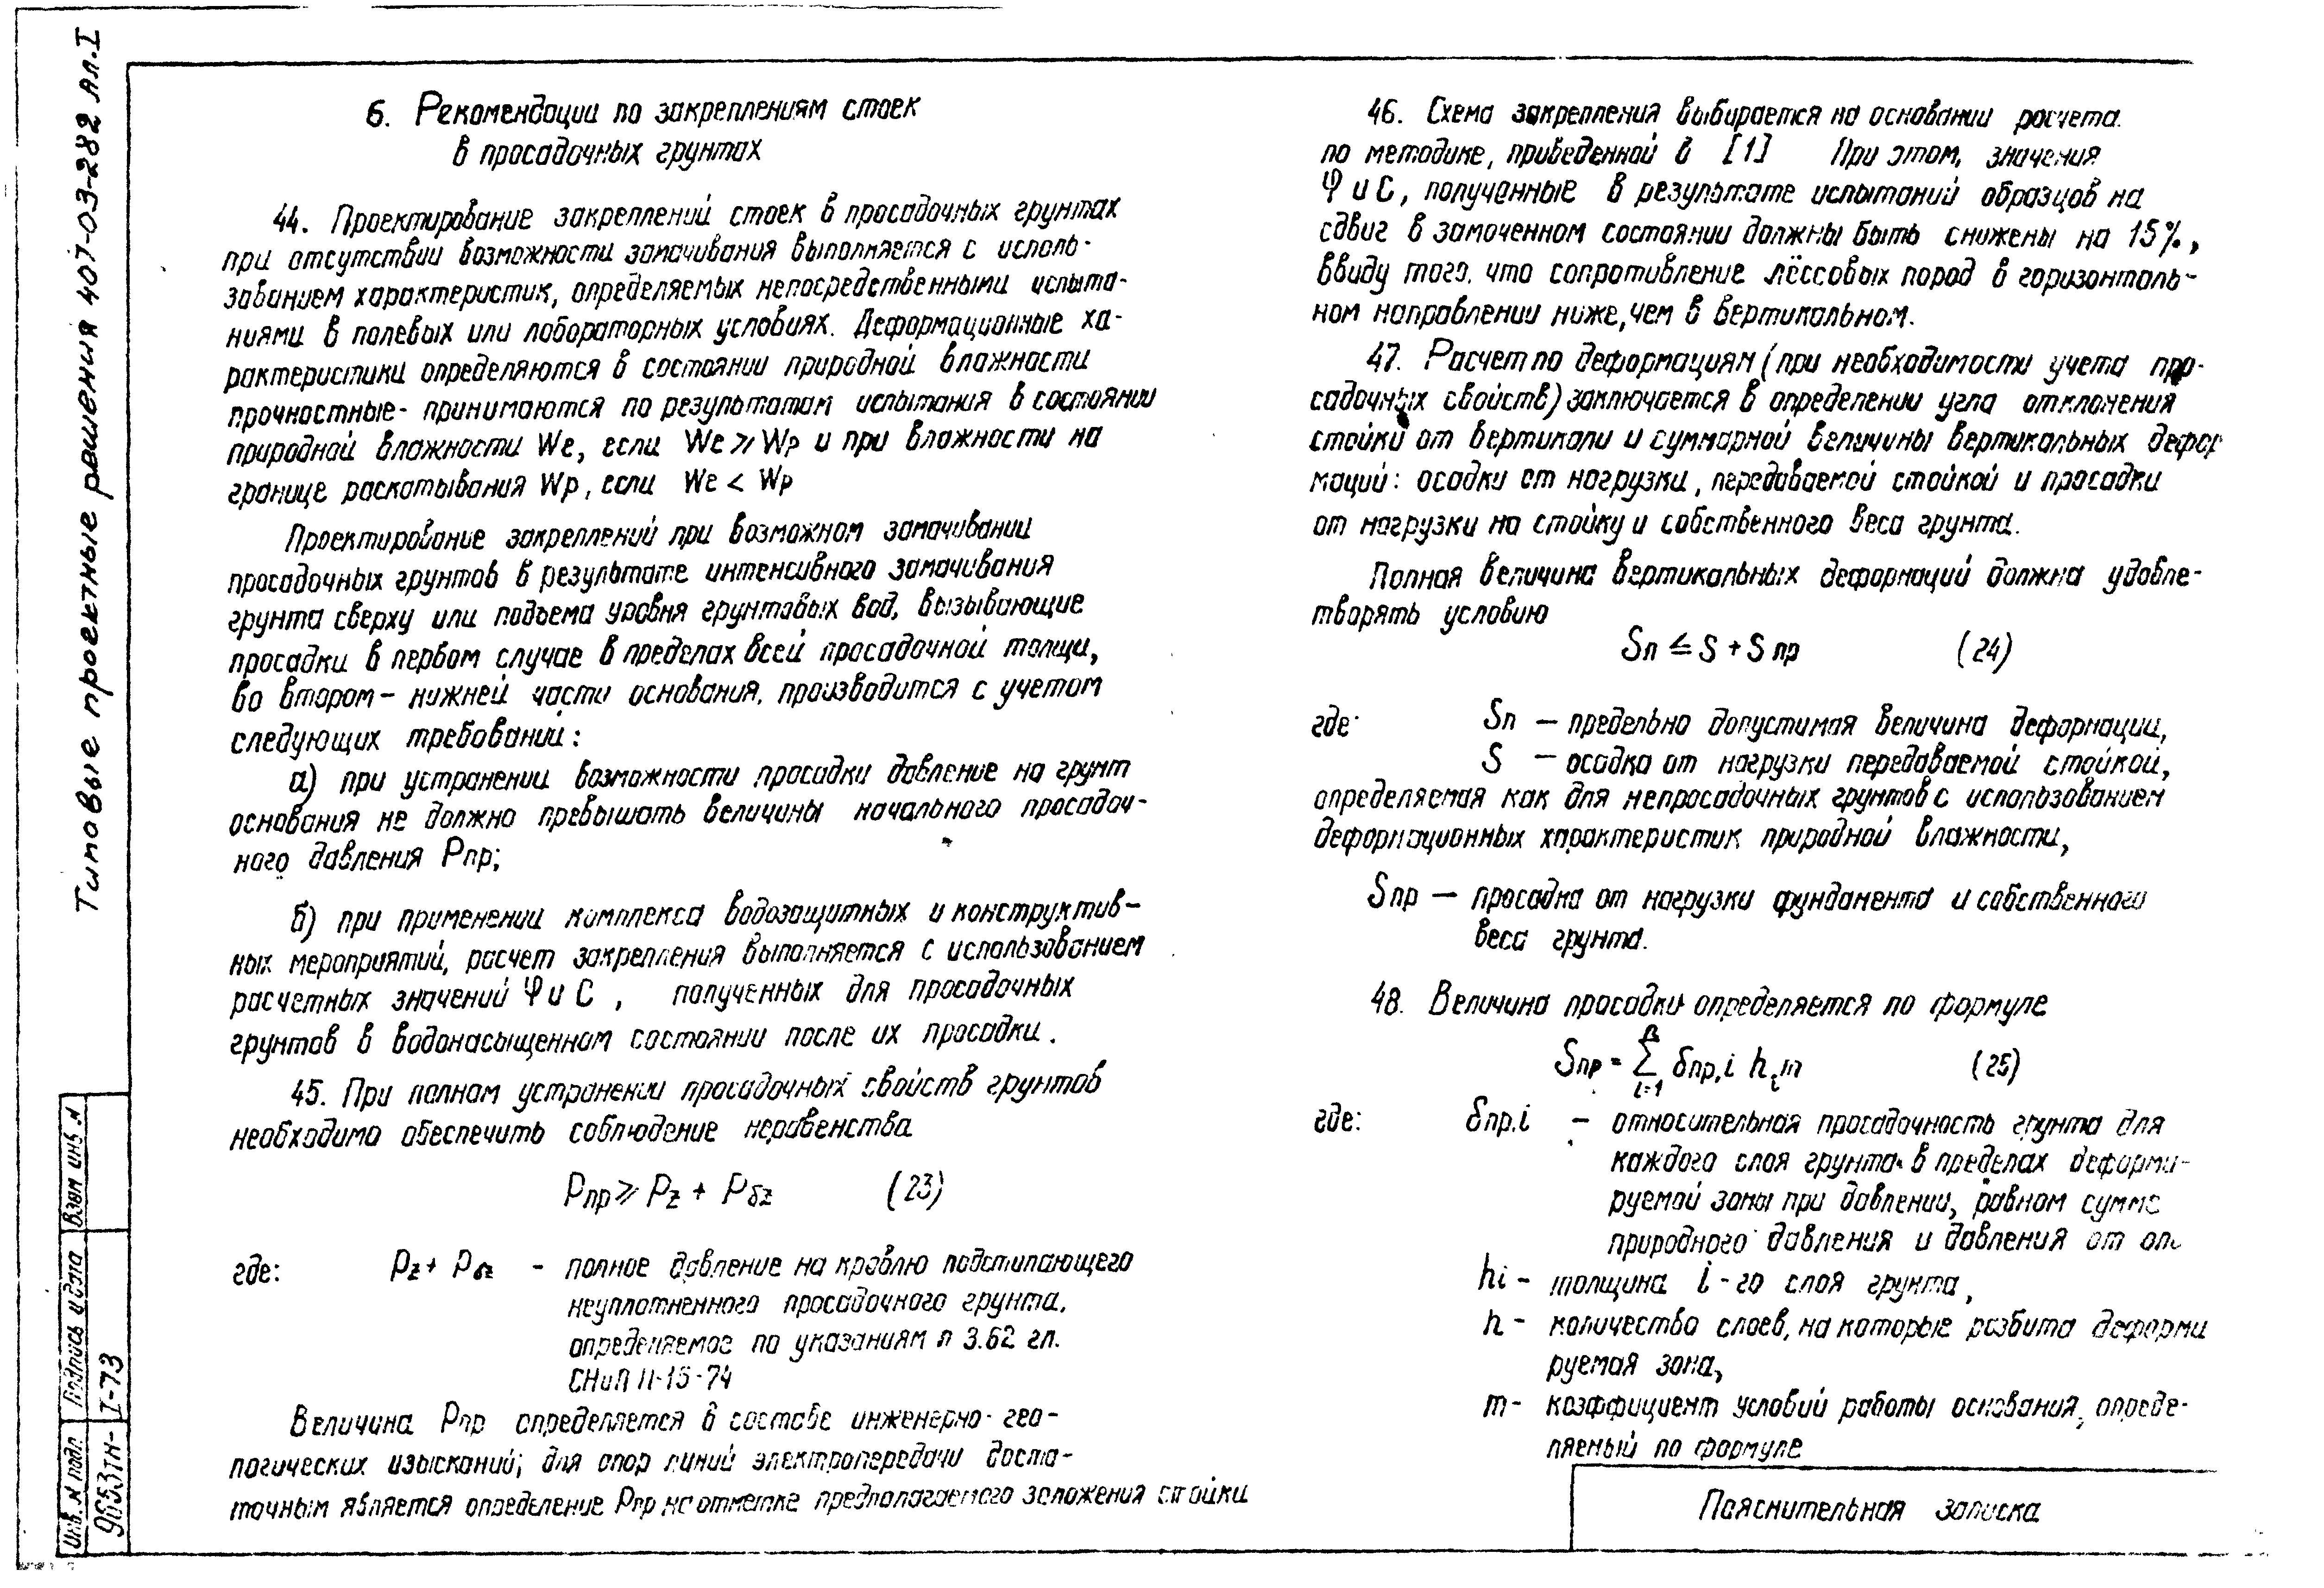 Типовые проектные решения 407-03-282 Ал.I
6. Рекомендации по закреплениям стоек
в просадочных грунтах
44. Проектирование закреплений стоек в просадочных грунтах
при отсутствии возможности замачивания выполняется с исполь-
зованием характеристик, определяемых непосредственными испыта-
ниями в полевых или лабораторных условиях. Деформационные ха-
рактеристики определяются в состоянии природной влажности
прочностные- принимаются по результатам испытания в состоянии
природной влажности We, если We ⩾ Wp и при влажности на
границе раскатывания Wp, если We < Wp
Проектирование закреплений при возможном замачивании
просадочных грунтов в результате интенсивного замачивания
грунта сверху или подъема уровня грунтовых вод, вызывающие
просадки в первом случае в пределах всей просадочной толщи,
во втором – нижней части основания, производится с учетом
следующих требований:
а) при устранении возможности просадки давление на грунт
основания не должно превышать величины начального просадоч-
ного давления Рпр;
б) при применении комплекса водозащитных и конструктив-
ных мероприятий, расчет закрепления выполняется с использованием
расчетных значений φ и С , полученных для просадочных
грунтов в водонасыщенном состоянии после их просадки.
45. При полном устранении просадочных свойств грунтов
необходимо обеспечить соблюдение неравенства
Рпр ⩾ Рz + Рбz (23)
где: Рz + Рбz - полное давление на кровлю подстилающего
неуплотненного просадочного грунта,
определяемое по указаниям п 3.62 гл.
СНиП II-15-74
Величина Рпр определяется в составе инженерно-гео-
логических изысканий; для опор линий электропередачи доста-
точным является определение Рпр на отметке предполагаемого заложения стойки
46. Схема закрепления выбирается на основании расчета
по методике, приведенной в [1] При этом, значения
φ и С, полученные в результате испытаний образцов на
сдвиг в замоченном состоянии должны быть снижены на 15%,
ввиду того, что сопротивление лёссовых пород в горизонталь-
ном направлении ниже, чем в вертикальном.
47. Расчет по деформациям (при необходимости учета про-
садочных свойств) заключается в определении угла отклонения
стойки от вертикали и суммарной величины вертикальных дефор
маций: осадки от нагрузки, передаваемой стойкой и просадки
от нагрузки на стойку и собственного веса грунта.
Полная величина вертикальных деформаций должна удовле-
творять условию
Sп ≤ S + Sпр (24)
где Sп – предельно допустимая величина деформации,
S – осадка от нагрузки передаваемой стойкой,
определяемая как для непросадочных грунтов с использованием
деформационных характеристик природной влажности,
Sпр – просадка от нагрузки фундамента и собственного
веса грунта.
48. Величина просадки определяется по формуле
Sпр = Σ i=1 δпр,i hi m (25)
где: δпр,i – относительная просадочность грунта для
каждого слоя грунта в пределах деформи-
руемой зоны при давлении, равном сумме
природного давления и давления от
hi – толщина i-го слоя грунта,
n – количество слоев, на которые разбита деформи
руемая зона,
m – коэффициент условий работы основания, опреде-
ляемый по формуле
Пояснительная записка
Инв. N подл.
Подпись и дата
Взам инв N
9653тм-I-73